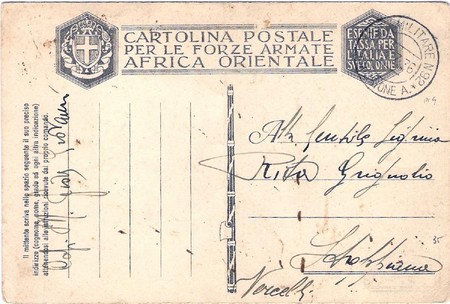 CARTOLINA POSTALE
PER LE FORZE ARMATE
AFRICA ORIENTALE
ESENTE DA
TASSA PER
L'ITALIA E
SUE COLONIE
MILITARE N.
Il mittente scriva nello spazio seguente il suo preciso
indirizzo (cognome, nome, grado ed ogni altra indicazione)
attenendosi alle istruzioni ricevute dal proprio comando.
Alla Gentile Signorina
Rita Grignolio
Stroppiana
Vercelli
35